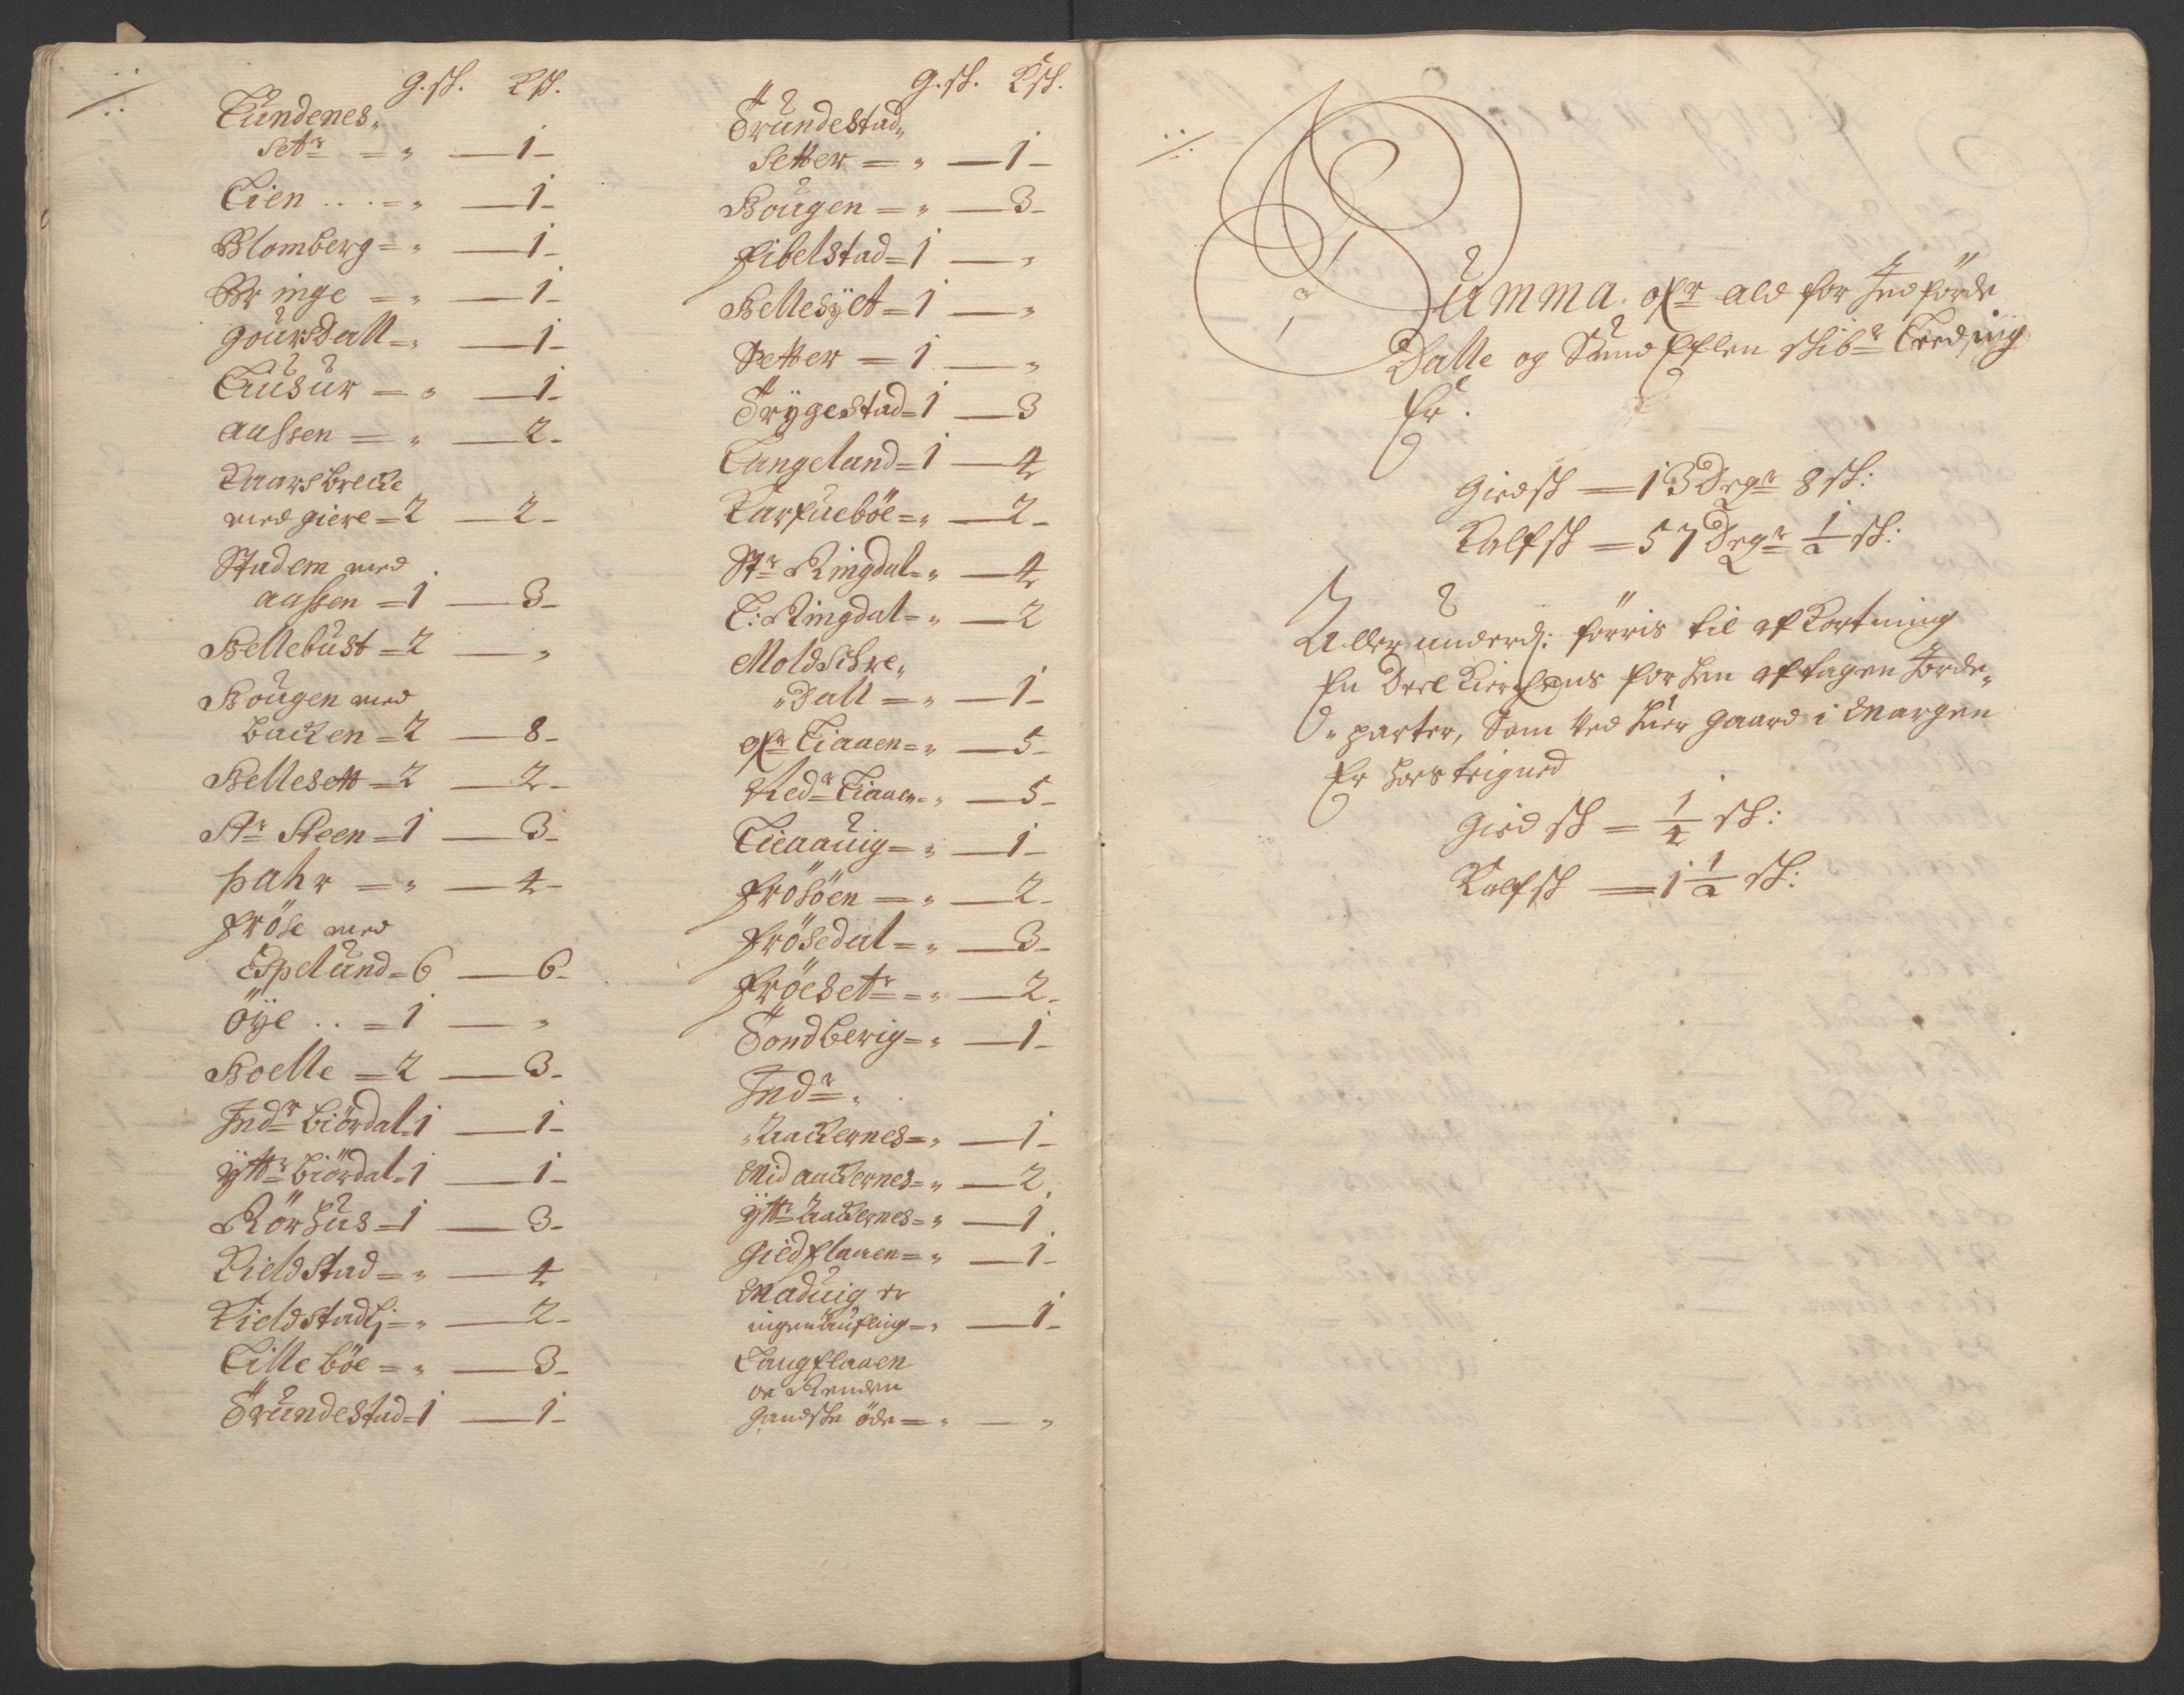 g.sk. Ksk.
Lundenes„
setr = „ — 1 –
Lien . . . = „ — 1 –
Blomberg = „ — 1 –
Bringe = „ — 1 –
Goursdall = „ — 1 –
Liusur = „ — 1 –
aassen = „ — 2 –
Kaarsbrecke
med giere = 2 — 2 –
Stadem med
aassen = 1 — 3 –
Hellebust = 2 — „
Hougen med
backen = 2 — 8 –
Hellesett = 2 — 2 –
Str Steen = 1 — 3 –
hahr = „ — 4 –
Fröse med
Espelund = 6 — 6 –
öÿe . . = 1 — „
Hoelle = 2 — 3 –
Indr biördal = 1 — 1 –
ÿttr biördal = 1 — 1 –
Rörhus = 1 — 3 –
Kieldstad = „ — 4
Kieldstadlj = „ — 2 –
Lilleböe = „ — 3 –
Trundestad = 1 — 1 –
g.sk. Ksk.
Trundestad„
Setter = „ — 1 –
Hougen = „ — 3 –
Fibelstad = 1 — „
Hellesÿlt = 1 — „
Setter = 1 — „
Trÿgestad = 1 — 3
Langeland = 1 — 4
Karfueböe = „ — 2 –
Str Ringdal = „ — 4
L: Ringdal = „ — 2
Moldschre„
„dall = „ — 1 –
ofr Liaaen = „ — 5 –
Nedr Liaaen = „ — 5 –
Lieaauig = „ — 1 –
Frösöen = „ — 2 –
Frösedal = „ — 3 –
Fröesetr = „ — 2 –
Tondberig = „ — 1 –
Indr „
„Aackernes = „ — 1 –
Mid aackernes = „ — 2
ÿttr Aackernes = „ — 1
Giedflaaen = „ — 1 –
Maduig er
ingen = „ — 1 –
Langflaaen
oc Renden
gandske öde = „ — „
Summa. ofr ald for Indförde
Dalle og Sund Elflen skibr
Er.
Giedsk = 13 Degr 8 sk:
Kalfsk = 57 Degr 1/2 sk:
Aller underd: förris til afkortning
En Deel Kierchens for hen aftagen Jorde„
„parter, Som ved huer gaard i Margen
Er hosteigned
Giedsk = 1/4 sk:
Kalfsk = 1 1/2 sk: